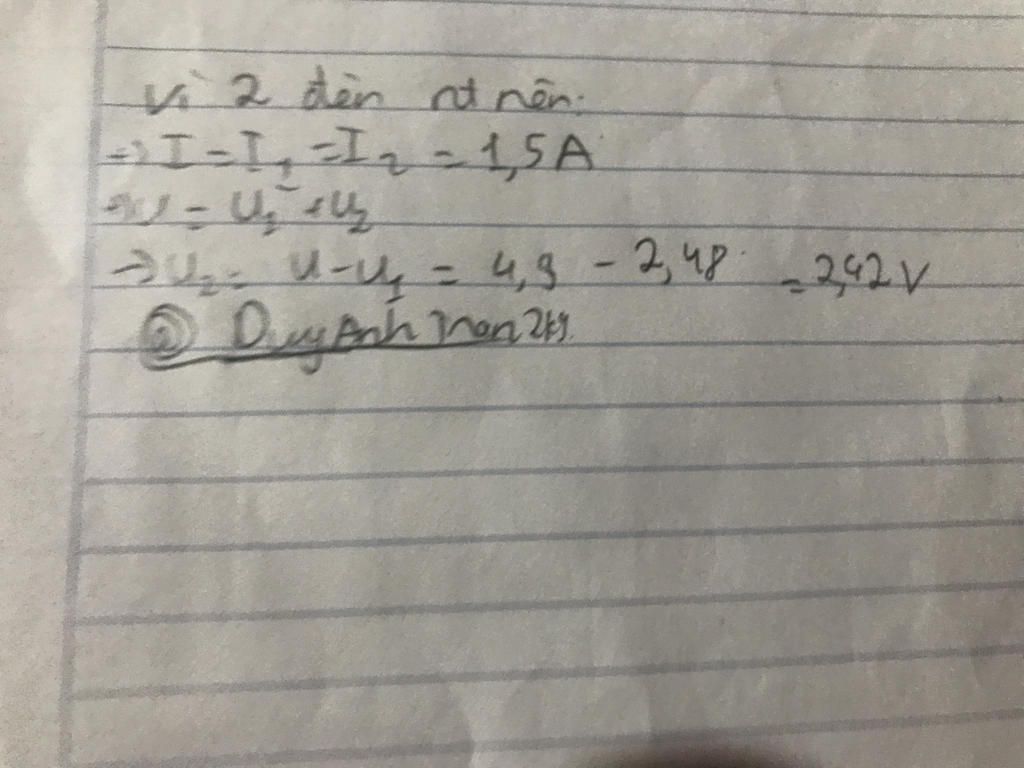 Vì 2 đèn nt nên:
=> I = I₁ = I₂ = 1,5A
=> U = U₁ + U₂
=> U₂ = U - U₁ = 4,9 - 2,48 = 2,42V
@ Duy Anh